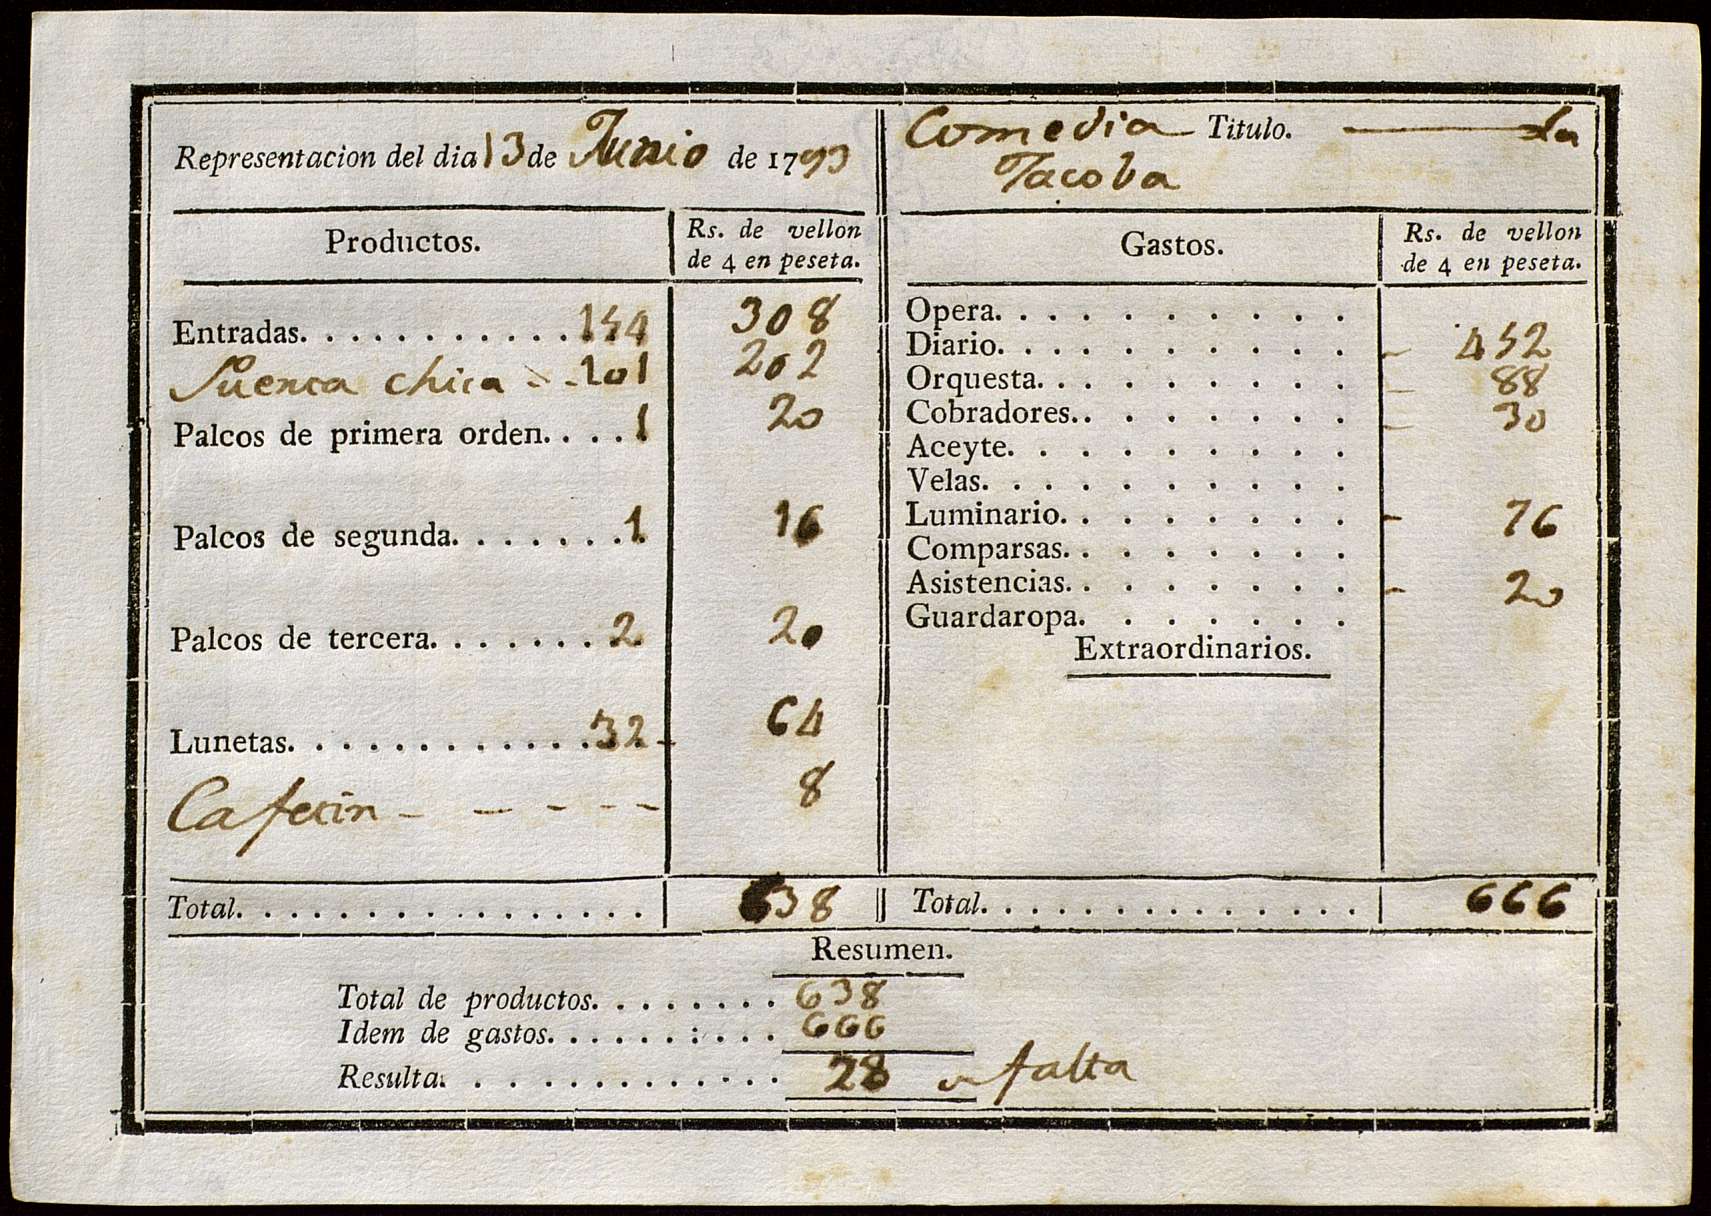 Representacion del dia 13 de Junio de 1793
Comedia Titulo. La
Jacoba
Productos. Rs. de vellon
de 4 en peseta.
Entradas. 154 308
Puerta chica 101 202
Palcos de primera orden. 1 20
Palcos de segunda. 1 16
Palcos de tercera. 2 20
Lunetas. 32 64
Cafetin 8
Total. 638
Gastos. Rs. de vellon
de 4 en peseta.
Opera.
Diario. 452
Orquesta. 88
Cobradores. 30
Aceyte.
Velas.
Luminario. 76
Comparsas.
Asistencias. 20
Guardaropa.
Extraordinarios.
Total. 666
Resumen.
Total de productos. 638
Idem de gastos. 666
Resulta. 28 falta